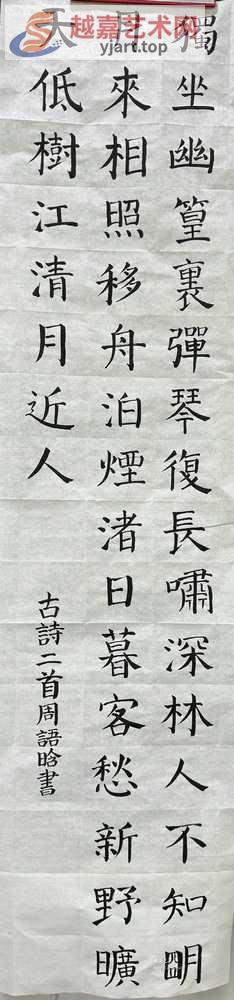 越嘉艺术网
yjart.top
獨坐幽篁裏彈琴復長嘯深林人不知明
月來相照移舟泊煙渚日暮客愁新野曠
天低樹江清月近人
古詩二首周語晗書